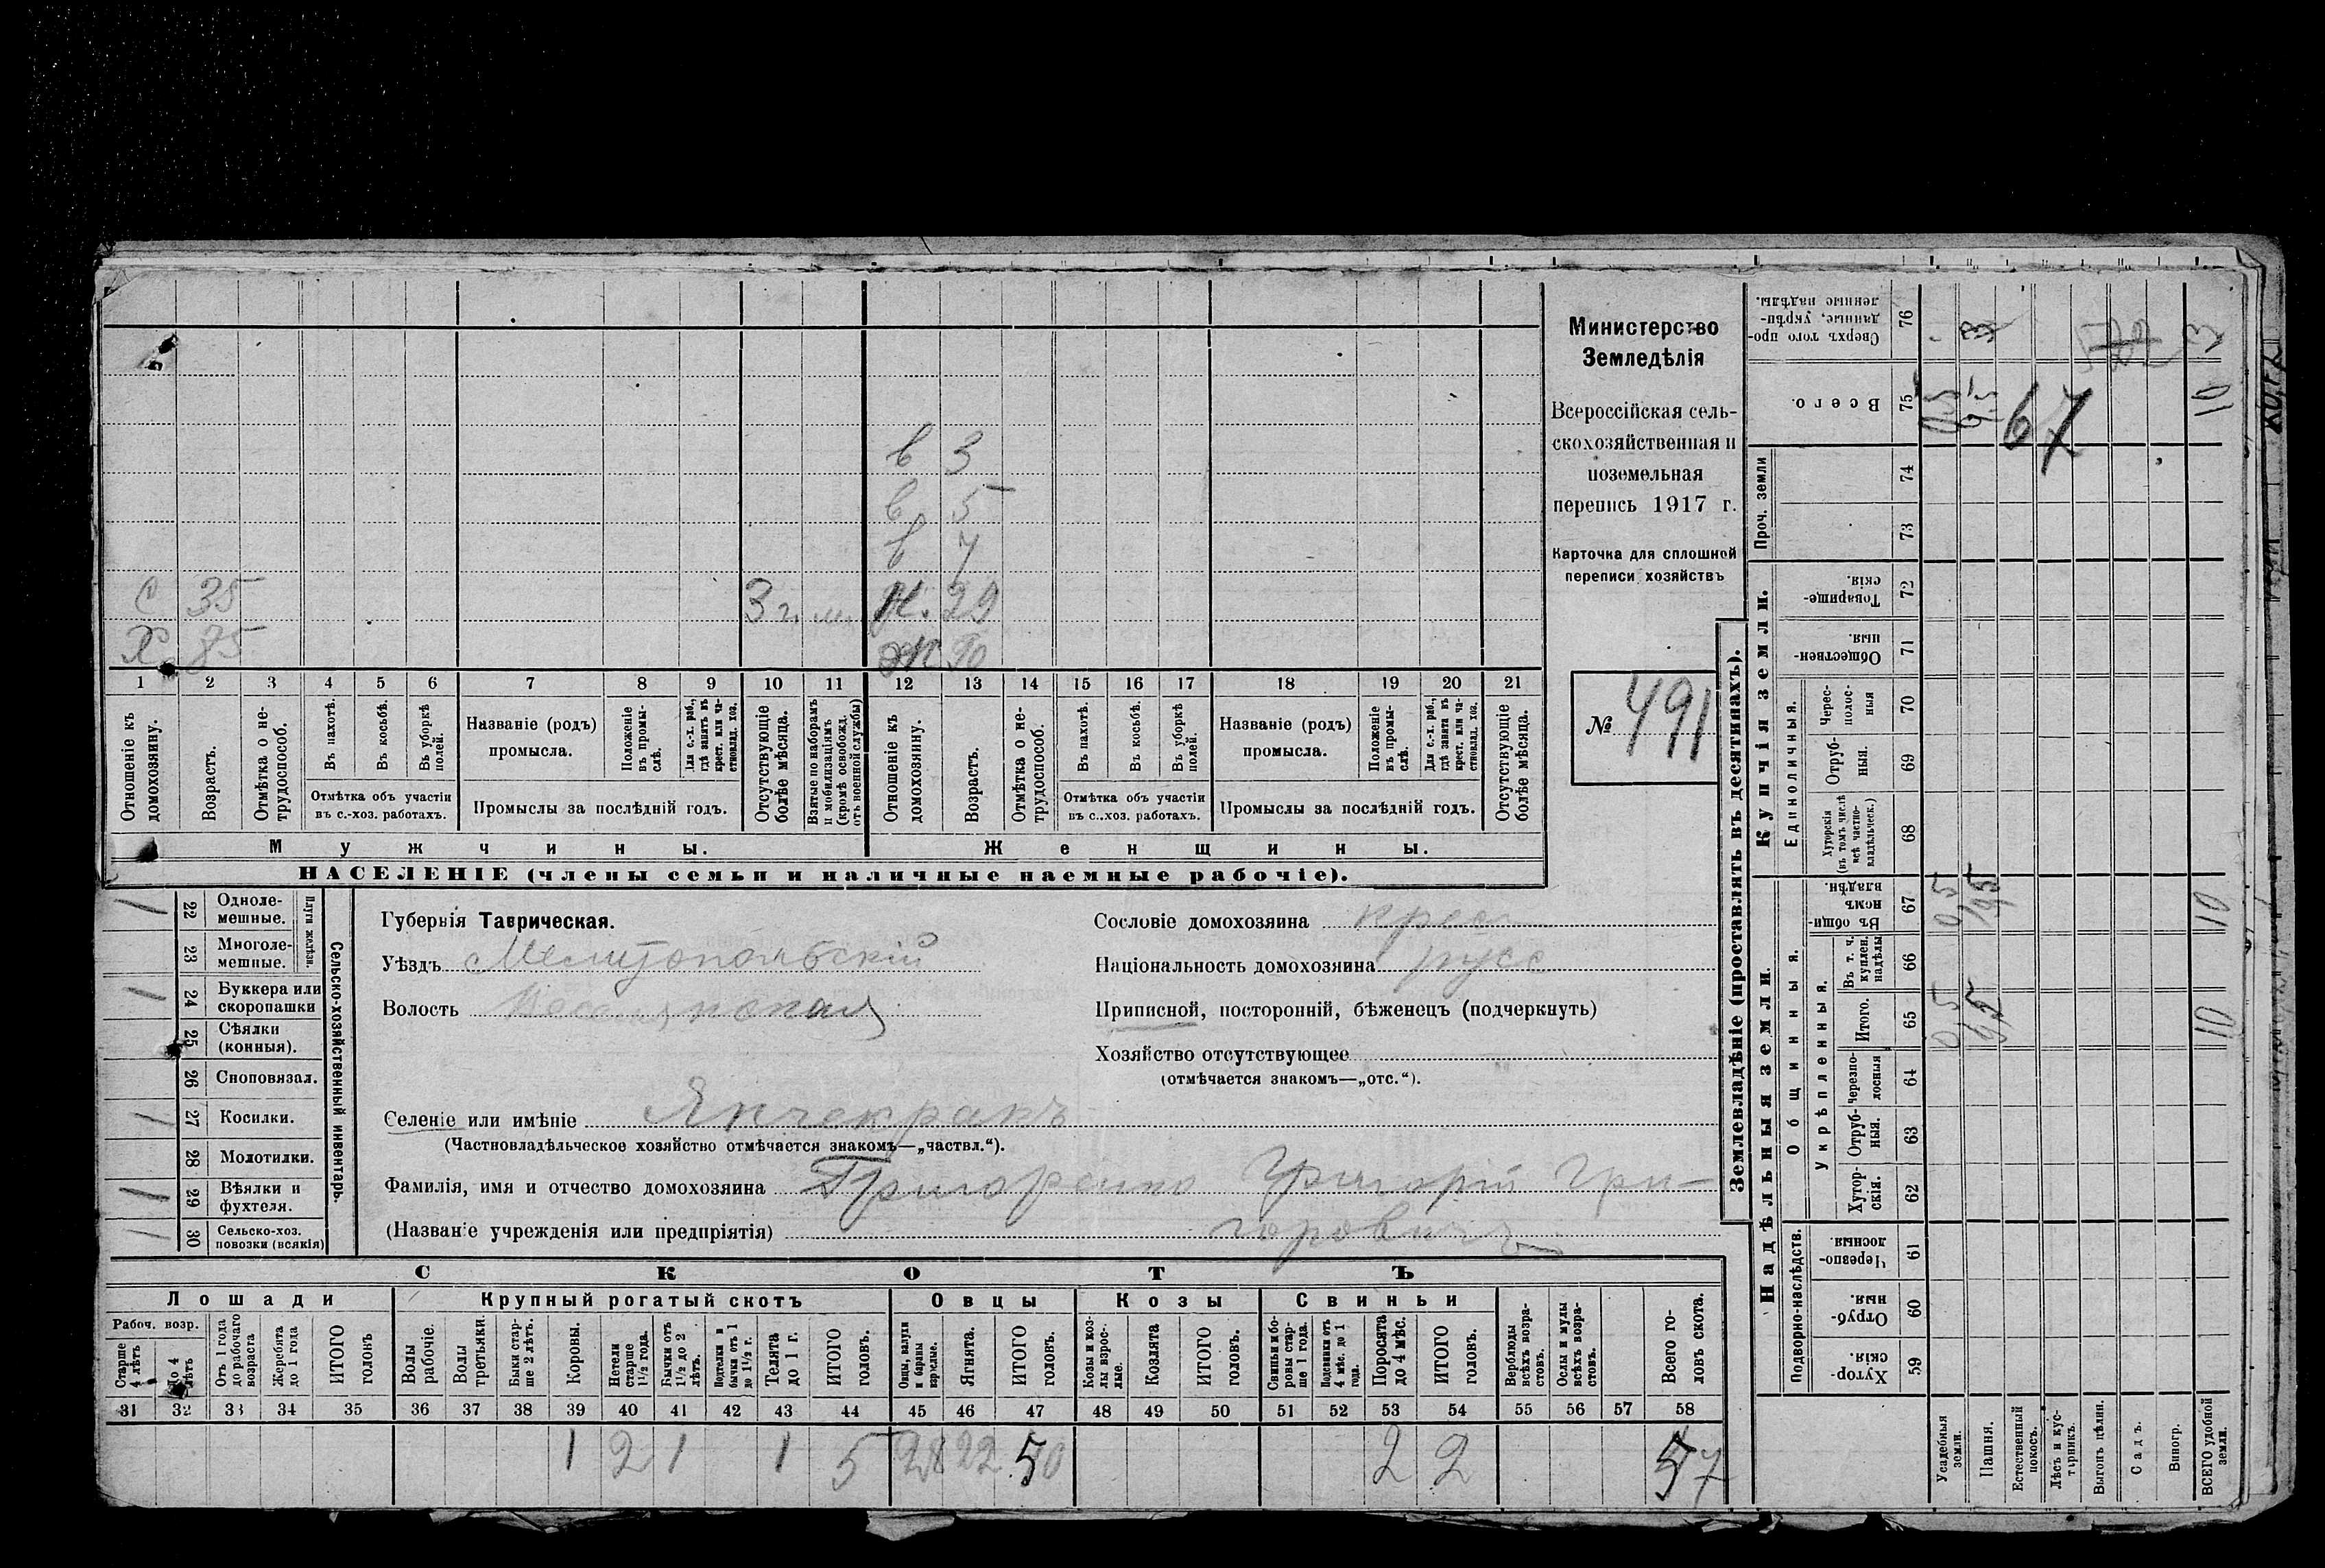 в 3
в 5
в 7
С 35 3 г. м. Н. 29
Х 85 Ж 90
1 2 3 4 5 6 7 8 9 10 11 12 13 14 15 16 17 18 19 20 21
Отношеніе къ домохозяину.
Возрастъ.
Отмѣтка о нетрудоспособ.
Въ пахотѣ.
Въ косьбѣ.
Въ уборкѣ полей.
Отмѣтка объ участіи
въ с.-хоз. работахъ.
Названіе (родъ)
промысла.
Положеніе въ промыслѣ.
Для с.-х. раб., гдѣ занятъ въ крест. или частновлад. хоз.
Промыслы за послѣдній годъ.
Отсутствующіе болѣе мѣсяца.
Взятые по наборамъ и мобилизаціямъ (кромѣ освобожд. отъ военной службы)
Отношеніе къ домохозяину.
Возрастъ.
Отмѣтка о нетрудоспособ.
Въ пахотѣ.
Въ косьбѣ.
Въ уборкѣ полей.
Отмѣтка объ участіи
въ с.-хоз. работахъ.
Названіе (родъ)
промысла.
Положеніе въ промыслѣ.
Для с.-х. раб., гдѣ занята въ крест. или частновлад. хоз.
Промыслы за послѣдній годъ.
Отсутствующіе болѣе мѣсяца.
Мужчины. Женщины.
НАСЕЛЕНІЕ (члены семьи и наличные наемные рабочіе).
Министерство
Земледѣлія
Всероссійская сель-
скохозяйственная и
поземельная
перепись 1917 г.
Карточка для сплошной
переписи хозяйствъ
№ 491
Сельско-хозяйственный инвентарь.
Плуги желѣзн.
1 22 Одноле-
мешные.
23 Многоле-
мешные.
1 24 Буккера или
скоропашки
25 Сѣялки
(конныя).
26 Сноповязал.
1 27 Косилки.
28 Молотилки.
1 29 Вѣялки и
фухтеля.
1 30 Сельско-хоз.
повозки (всякія)
Губернія Таврическая.
Уѣздъ Мелитопольскій
Волость
Селеніе или имѣніе Янчекракъ
(Частновладѣльческое хозяйство отмѣчается знакомъ—„частвл.“).
Фамилія, имя и отчество домохозяина Григоренко Григорій Гри-
(Названіе учрежденія или предпріятія) горовичъ
Сословіе домохозяина крест
Національность домохозяина русс
Приписной, посторонній, бѣженецъ (подчеркнуть)
Хозяйство отсутствующее
(отмѣчается знакомъ—„отс.“).
СКОТЪ
Лошади Крупный рогатый скотъ Овцы Козы Свиньи
Рабоч. возр.
Старше 4 лѣтъ
До 4 лѣтъ
Отъ 1 года до рабочаго возраста
Жеребята до 1 года
ИТОГО головъ
Волы рабочіе.
Волы третьяки.
Быки старше 2 лѣтъ.
Коровы.
Нетели старше 1½ года.
Бычки отъ 1½ до 2 лѣтъ.
Подтелки и бычки отъ 1 до 1½ г.
Телята до 1 г.
ИТОГО головъ.
Овцы, валухи и бараны взрослые.
Ягнята.
ИТОГО головъ.
Козы и козлы взрослые.
Козлята
ИТОГО головъ.
Свиньи и боровы старше 1 года.
Подсвинки отъ 4 мѣс. до 1 года.
Поросята до 4 мѣс.
ИТОГО головъ.
Верблюды всѣхъ возрастовъ.
Ослы и мулы всѣхъ возрастовъ.
Всего головъ скота.
31 32 33 34 35 36 37 38 39 40 41 42 43 44 45 46 47 48 49 50 51 52 53 54 55 56 57 58
1 2 1 1 5 28 22 50 2 2 57
Землевладѣніе (проставлять въ десятинахъ).
Купчія земли.
Надѣльныя земли.
Сверхъ того проданные, укрѣпленные надѣлы. 76 3 3
Всего. 75 0,5 9,5 10
67
Проч. земли
74
73
Товарищескія. 72
Общественныя. 71
Единоличныя.
Черезполосныя 70
Отрубныя. 69
Хуторскія (въ томъ числѣ всѣ частновладѣльческ.) 68
Общинныя.
Въ общинномъ владѣн. 67 0,5 9,5 10
Укрѣпленныя.
Въ т. ч. куплен. надѣлы 66
Итого. 65 0,5 9,5 10
Черезполосныя 64
Отрубныя. 63
Хуторскія. 62
Подворно-наслѣдств.
Черезполосныя. 61
Отрубныя. 60
Хуторскія 59
Усадебныя земли.
Пашня.
Естественный покосъ.
Лѣсъ и кустарникъ.
Выгонъ цѣлин.
Садъ.
Виногр.
ВСЕГО удобной земли.